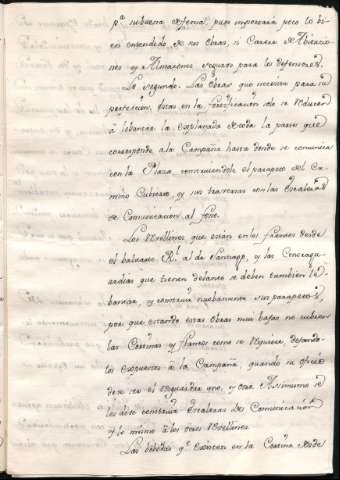 pª su buena defensa, pues importará poco lo bi
en entendido de sus obras, si carece de Abitacio
nes y Almazenes seguros para los defensores.
Lo segundo. Las obras que necesita para su
perfeccion, dicas en la fortificacion de se reducen
à lebantar la explanada de toda la parte que
corresponde a la Campaña hasta donde se comunica
con la Plaza, construiendole el parapeto del Ca
mino Cubierto, y sus traversas con las Escaleras
de Comunicacion al foso.
Los Rebellines que están en los frentes desde
el baluarte Rˡ al de Santiago, y las Contragu
ardias que tienen delante se deben tambien le
bantar, y construir nuebamente sus parapetos,
por que estando estas obras muy bajas no cubren
las Cortinas y flancos como se requiere dejando
los expuestos à la Campaña, quando su oficio
deve ser el resguardar uno, y otro. Assimismo se
les debe construir Escaleras de Comunicazion
y lo mismo à los otros Rebellines.
Las bobedas qᵉ existen en la Cortina desde